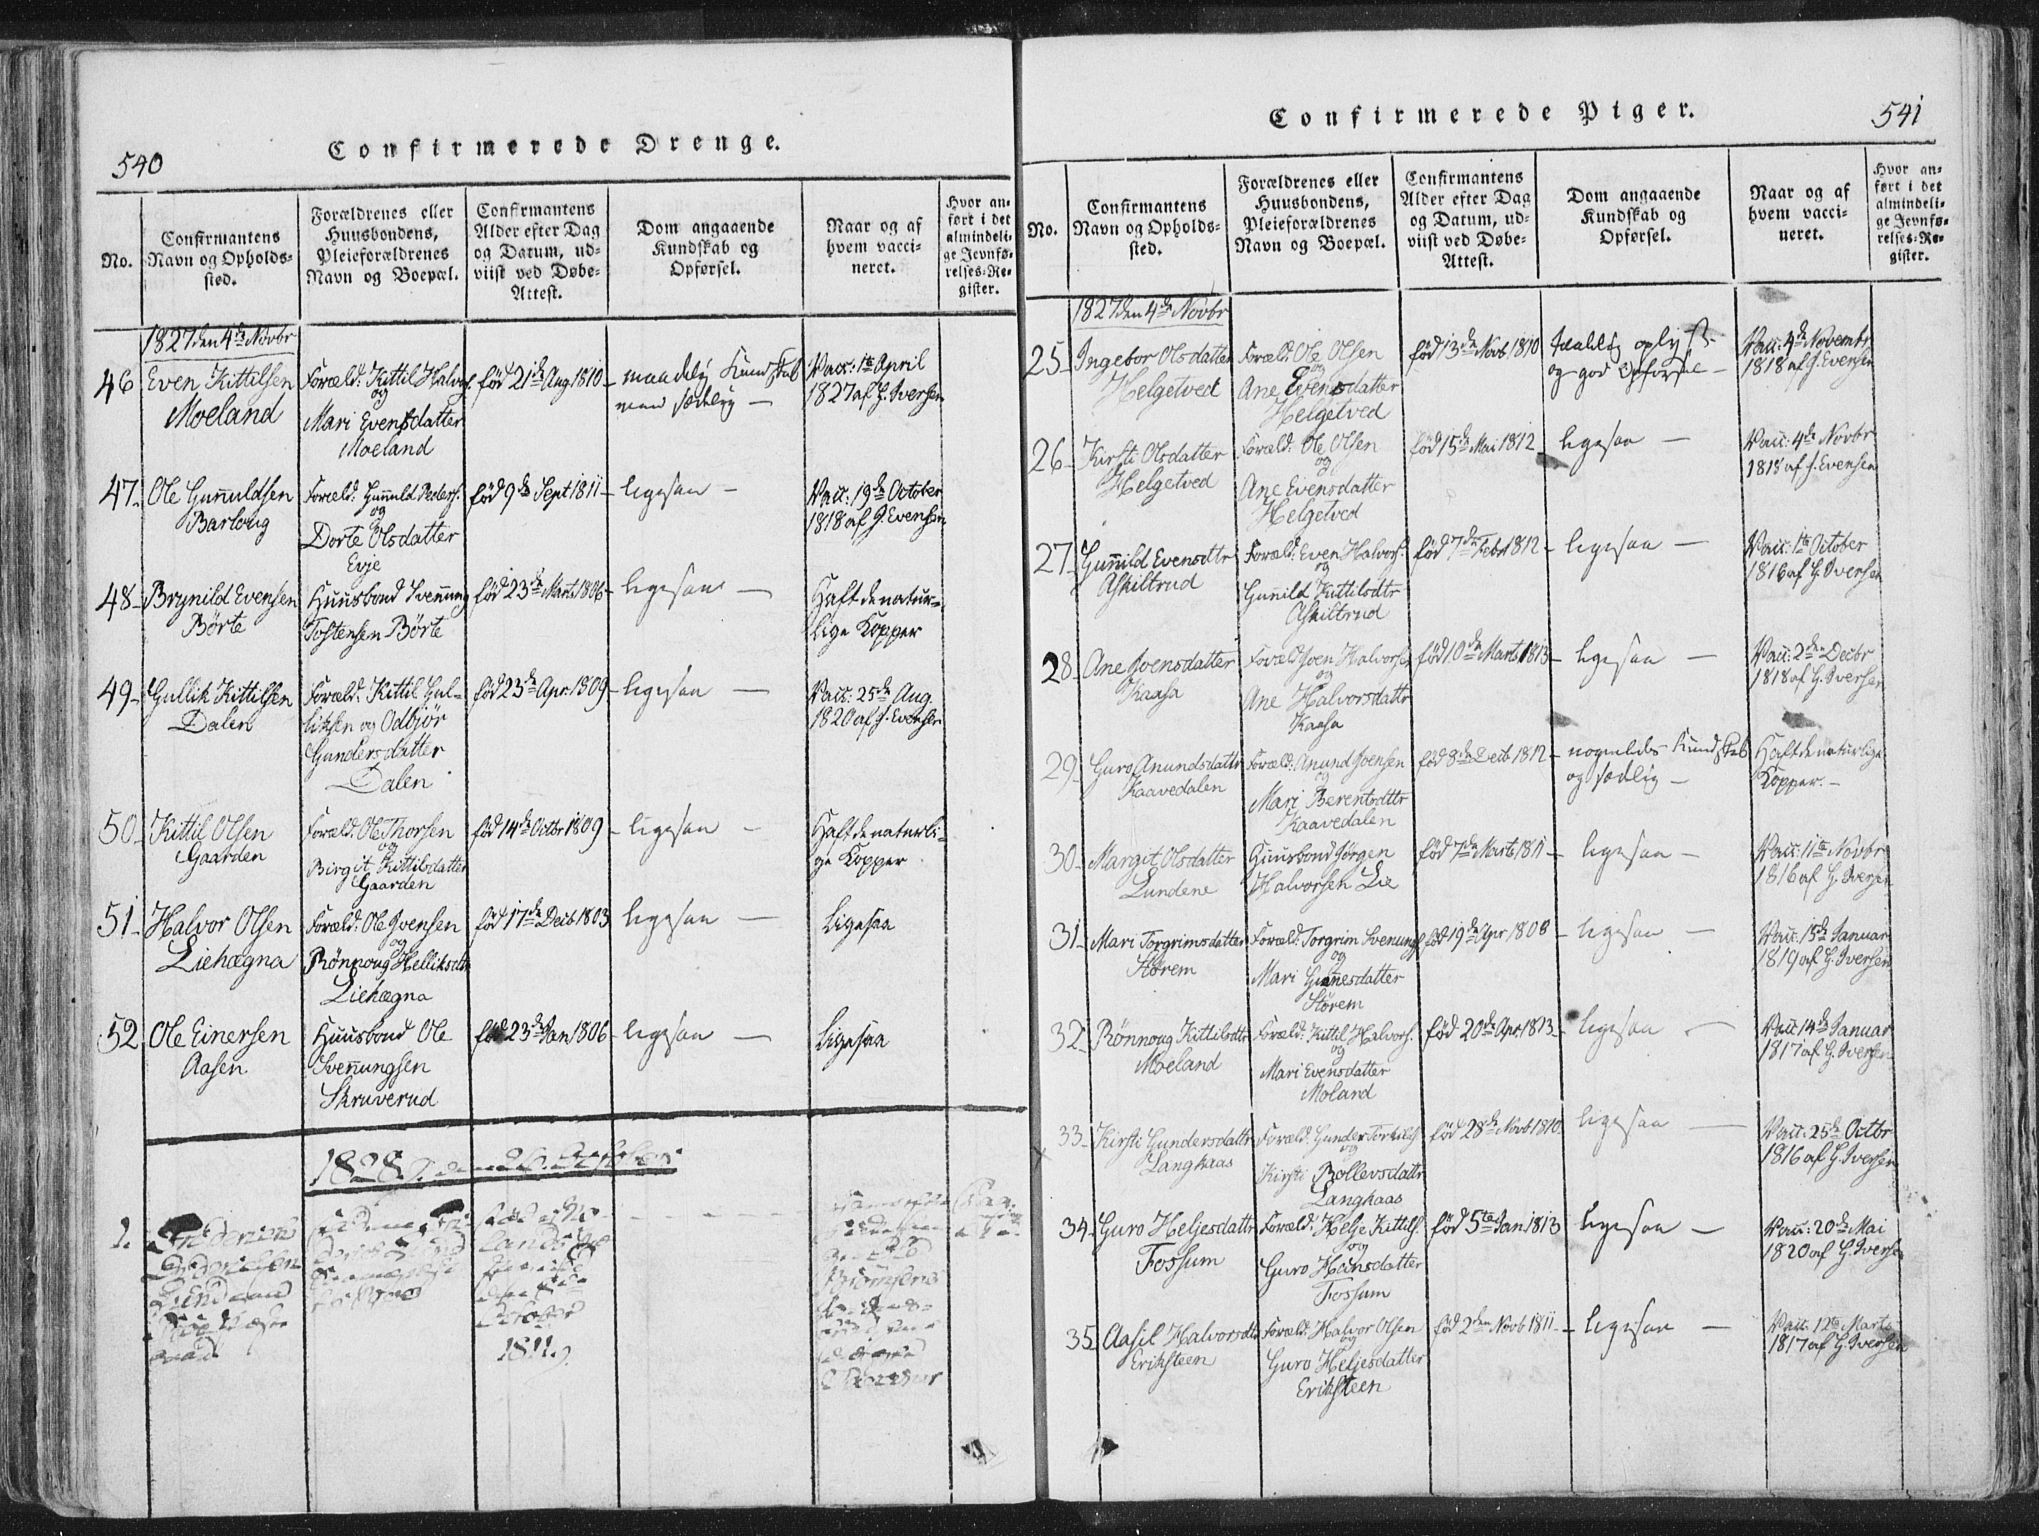 540
Confirmerede Drenge.
No.
Confirmantens
Navn og Opholds-
sted.
Forældrenes eller
Huusbondens,
Pleieforældrenes
Navn og Boepæl.
Confirmantens
Alder efter Dag
og Datum, ud-
viist ved Døbe-
Attest.
Dom angaaende
Kundskab og
Opførsel.
Naar og af
hvem vacci-
neret.
Hvor an-
ført i det
almindeli-
ge Jevnfø-
relses-Re-
gister.
1827 den 4de Novbr
46 Even Kittilsen
Moeland
Foræld: Kittil Halvors.
og
Mari Evensdatter
Moeland
født 21de Aug 1810
maadelig Kundskab
men sædelig —
Vacc: 1te April
1827 af G. Iversen
47. Ole Gunnuldsen
Barloug
Foræld: Gunnuld Peders.
og
Dorte Olsdatter
Evje
født 9de Sept 1811
ligesaa —
Vacc: 19de October
1818 af J. Evensen
48 Brynild Evensen
Børte
Huusbond Svennung
Tostensen Børte
født 23de Marts 1806
ligesaa —
Haft de natur-
lige Kopper
49 Gullik Kittilsen
Dalen
Foræld: Kittil Gul-
liksen og Odbjør
Gundersdatter
Dalen
født 23de Apr 1809
ligesaa —
Vacc: 25de Aug
1820 af J. Evensen
50 Kittil Olsen
Gaarden
Foræld: Ole Thorsen
og
Birgit Kittilsdatter
Gaarden
født 14de Octbr 1809
ligesaa —
Haft de naturli-
ge Kopper
51 Halvor Olsen
Liehægna
Foræld: Ole Ivensen
og
Rønnoug Helliksdtr
Liehægna
født 17de Decb 1803
ligesaa —
Ligesaa
52 Ole Einersen
Aasen
Huusbond Ole
Svennungsen
Skruverud
født 23de Jan 1806
ligesaa —
Ligesaa
1828, den 26 October
1.
October
1811.
541
Confirmerede Piger.
No.
Confirmantens
Navn og Opholds-
sted.
Forældrenes eller
Huusbondens,
Pleieforældrenes
Navn og Boepæl.
Confirmantens
Alder efter Dag
og Datum, ud-
viist ved Døbe-
Attest.
Dom angaaende
Kundskab og
Opførsel.
Naar og af
hvem vacci-
neret.
Hvor an-
ført i det
almindeli-
ge Jevnfø-
relses-Re-
gister.
1827 den 4de Novbr
25 Ingebor Olsdatter
Helgetved
Foræld: Ole Olsen
og
Ane Evensdatter
Helgetved
født 13de Novb 1810
taalelig oplyst
og god Opførsel —
Vacc: 4de Novembr
1818 af J. Evensen
26 Kirsti Olsdatter
Helgetved
Foræld: Ole Olsen
og
Ane Evensdatter
Helgetved
født 15de Mai 1812
ligesaa —
Vacc: 4de Novbr
1818 af J. Evensen
27 Gunnild Evensdtr
Askiltrud
Foræld: Even Halvors.
og
Gunnild Kittilsdtr
Askiltrud
født 7de Febr 1812
ligesaa —
Vacc: 1te October
1816 af G. Iversen
28 Ane Joensdatter
Kaasa
Foræld: Joen Halvorsen
og
Ane Halvorsdattr
Kaasa
født 10de Marts 1813
ligesaa —
Vacc: 2den Decbr
1818 af G. Iversen
29 Guro Anundsdattr
Kaavedalen
Foræld: Anund Joensen
og
Mari Berentsdttr
Kaavedalen
født 8de Decb 1812
nogenledes Kundskab
og sædelig —
Haft de naturlige
Kopper. —
30 Margit Olsdatter
Lundene
Huusbond Jørgen
Halvorsen Lie
født 7de Marts 1811
ligesaa —
Vacc: 11te Novbr
1816 af G. Iversen
31 Mari Torgrimsdatter
Storem
Foræld: Torgrim Svenungs.
og
Mari Gunnesdatter
Storem
født 19de Apr 1808
ligesaa —
Vacc: 15de Januar
1819 af G. Iversen
32 Rønnoug Kittilsdtr
Moeland
Foræld: Kittil Halvors.
og
Mari Evensdatter
Moland
født 20de Apr. 1813
ligesaa —
Vacc 14de Januar
1817 af G. Iversen
33 Kirsti Gundersdattr
Langkaas
Foræld: Gunder Torkils.
og
Kirsti Rollevsdattr
Langkaas
født 28de Novb 1810
ligesaa —
Vacc: 25de Octbr
1816 af G. Iversen
34 Guro Heljesdattr
Fossum
Foræld: Helje Kittils.
og
Guro Hansdatter
Fossum
født 5te Jan 1813
ligesaa —
Vacc: 20de Mai
1820 af G. Iversen
35 Aasil Halvorsdtr
Eriksteen
Foræld: Halvor Olsen
og
Guro Heljesdatter
Eriksteen
født 2den Novb 1811
ligesaa —
Vacc: 12te Marts
1817 af G. Iversen